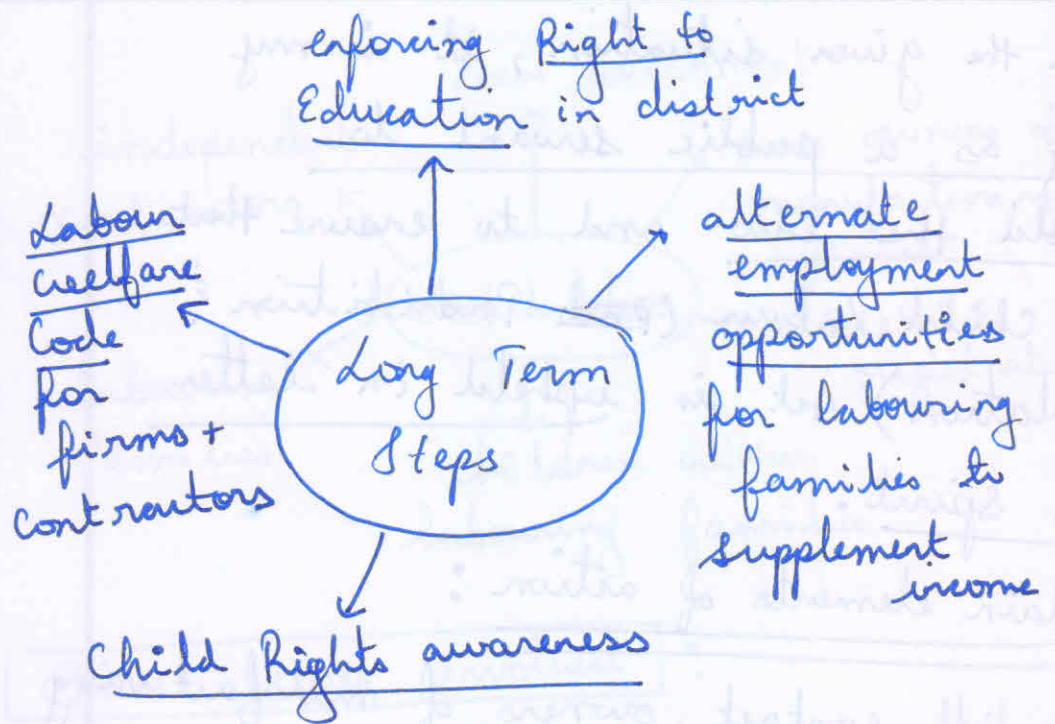 enforcing Right to
Education in district
Labour
Welfare
Code
for
firms +
contractors
Long Term
Steps
alternate
employment
opportunities
for labouring
families to
supplement
income
Child Rights awareness